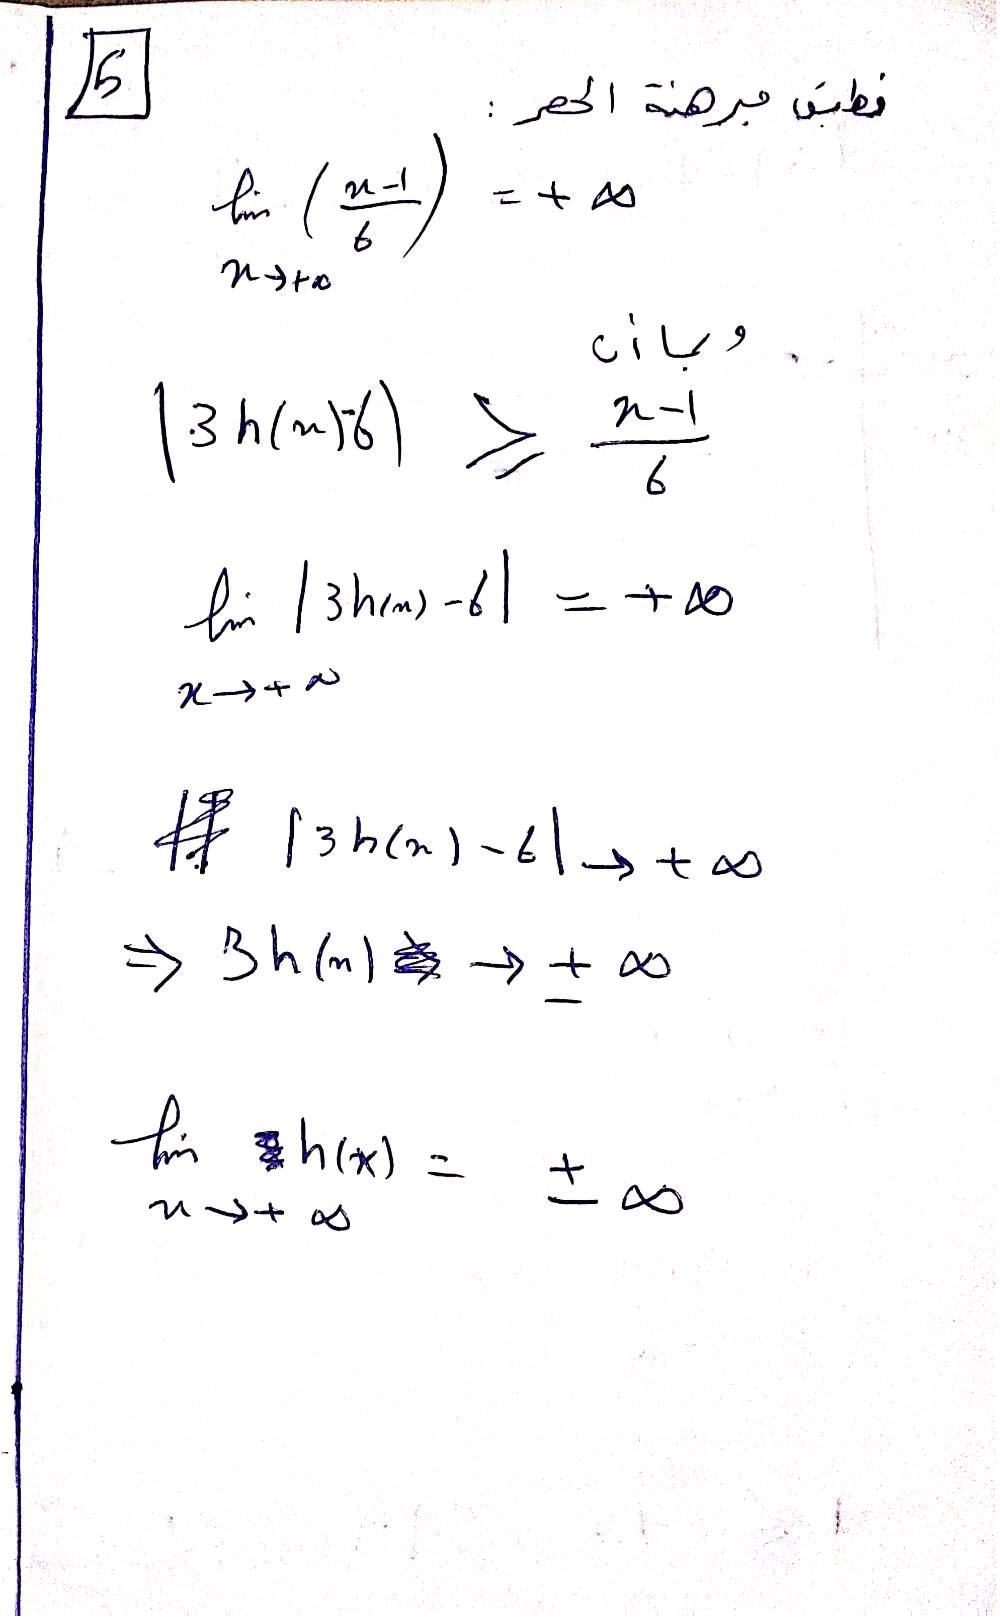 5
نطبق مبرهنة الحصر :
lim (x-1/6) = +∞
x→+∞
وبما أن
|3h(x)-6| ⩾ x-1/6
lim |3h(x)-6| = +∞
x→+∞
|3h(x)-6| → +∞
⇒ 3h(x) → ±∞
lim h(x) = ±∞
x→+∞